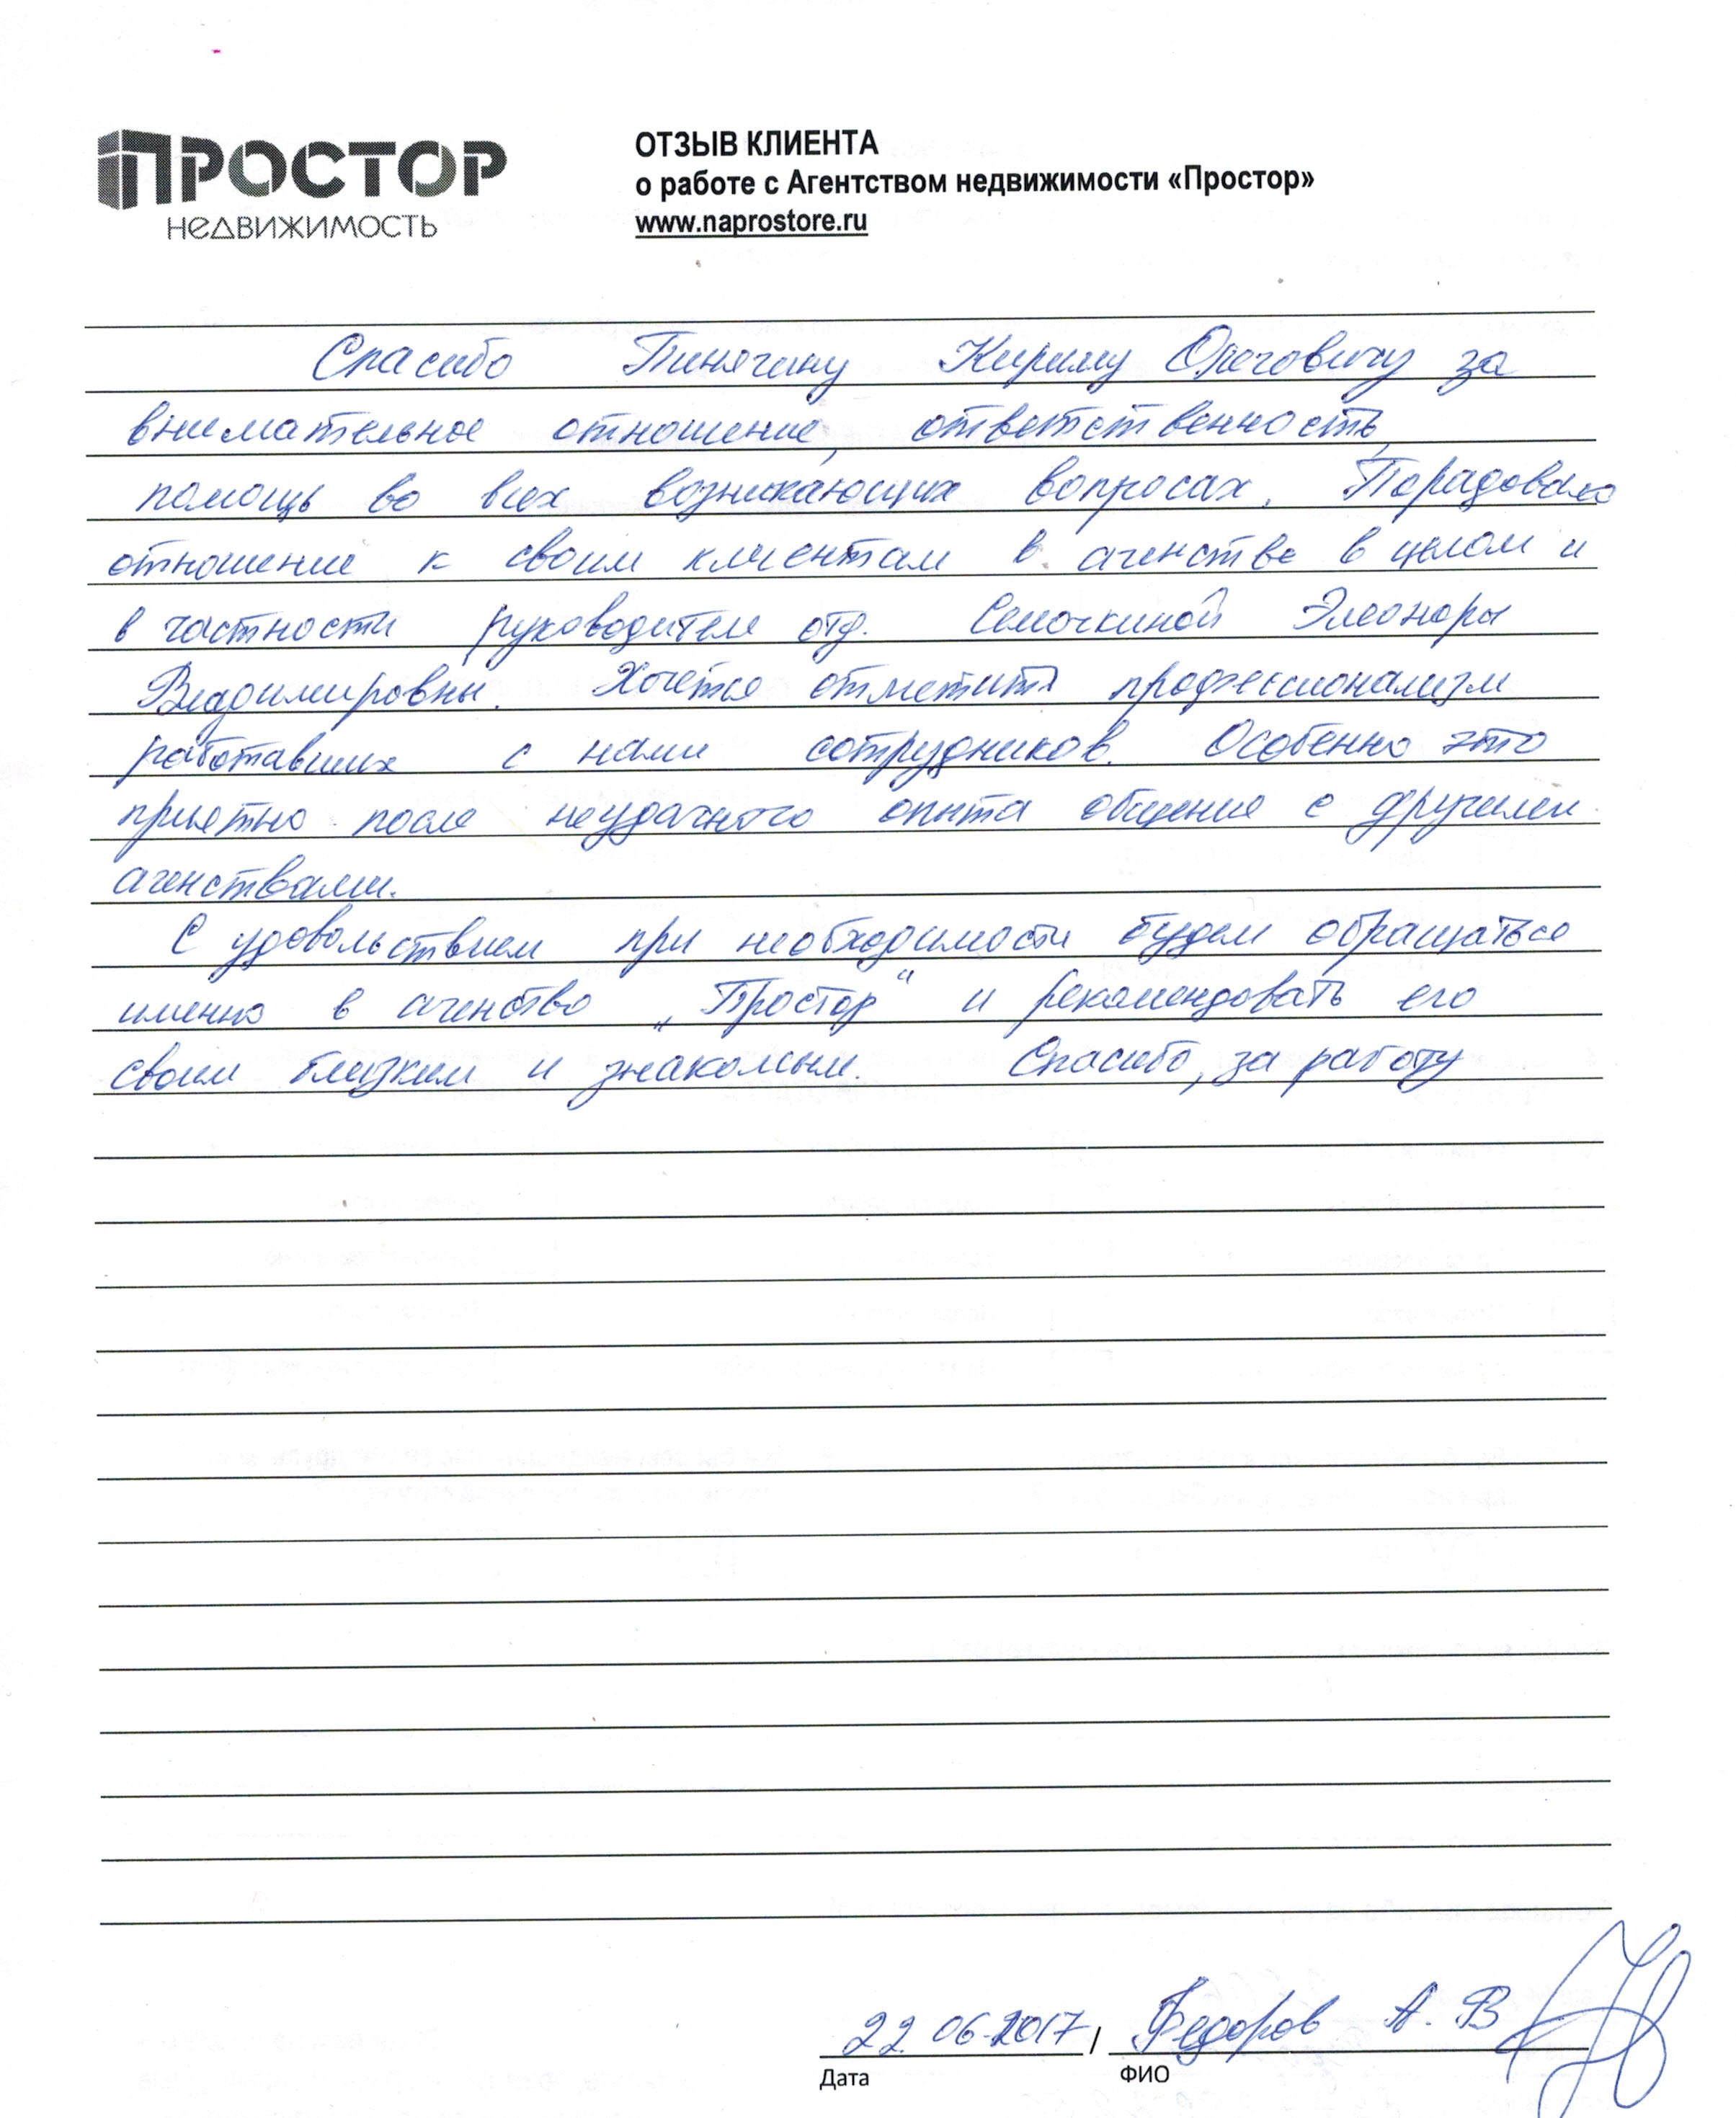 ПРОСТОР
НЕДВИЖИМОСТЬ
ОТЗЫВ КЛИЕНТА
о работе с Агентством недвижимости «Простор»
www.naprostore.ru
Спасибо Тинягину Кириллу Олеговичу за
внимательное отношение, ответственность,
помощь во всех возникающих вопросах. Порадовало
отношение к своим клиентам в агенстве в целом и
в частности руководителя отд. Семочкиной Элеоноры
Владимировны. Хочется отметить профессионализм
работавших с нами сотрудников. Особенно это
приятно после неудачного опыта общения с другими
агенствами.
С удовольствием при необходимости будем обращаться
именно в агенство „Простор“ и рекомендовать его
своим близким и знакомым. Спасибо, за работу
22.06.2017 / Федоров А. В
Дата ФИО